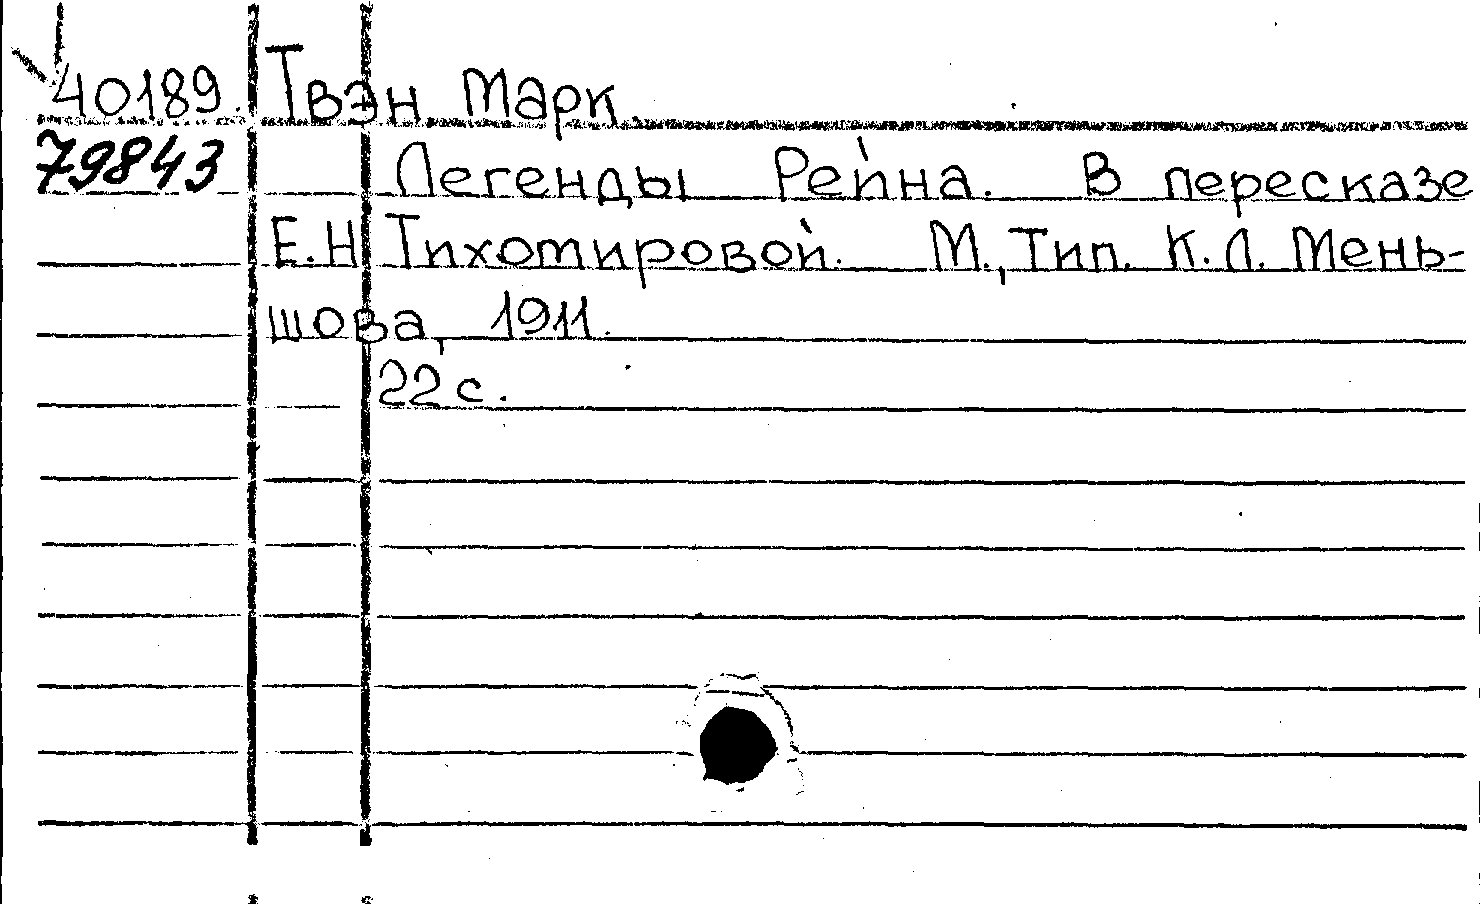 40189. Твэн Марк.
79843 Легенды Рейна. В пересказе
Е.Н Тихомировой. М., Тип. К.Л. Мень-
шова, 1911.
22 с.